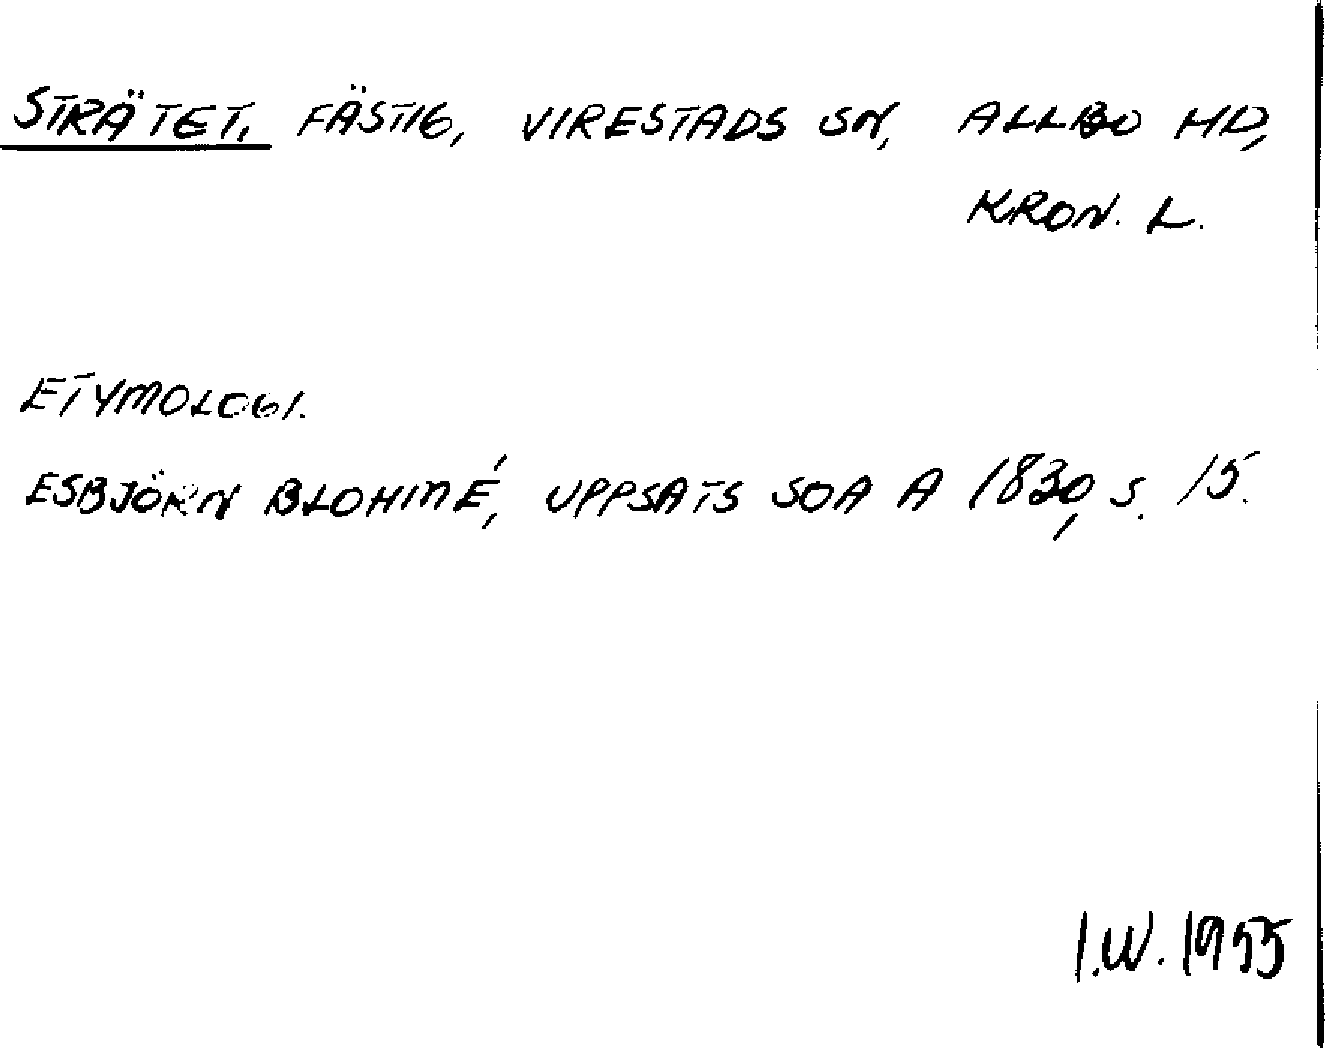 STRÄTET, FÄSTIG, VIRESTADS SN, ALLBO HD,
KRON. L.
ETYMOLOGI.
ESBJÖRN BLOHMÉ, UPPSATS SOA A 1830, S. 15.
I.W. 1955